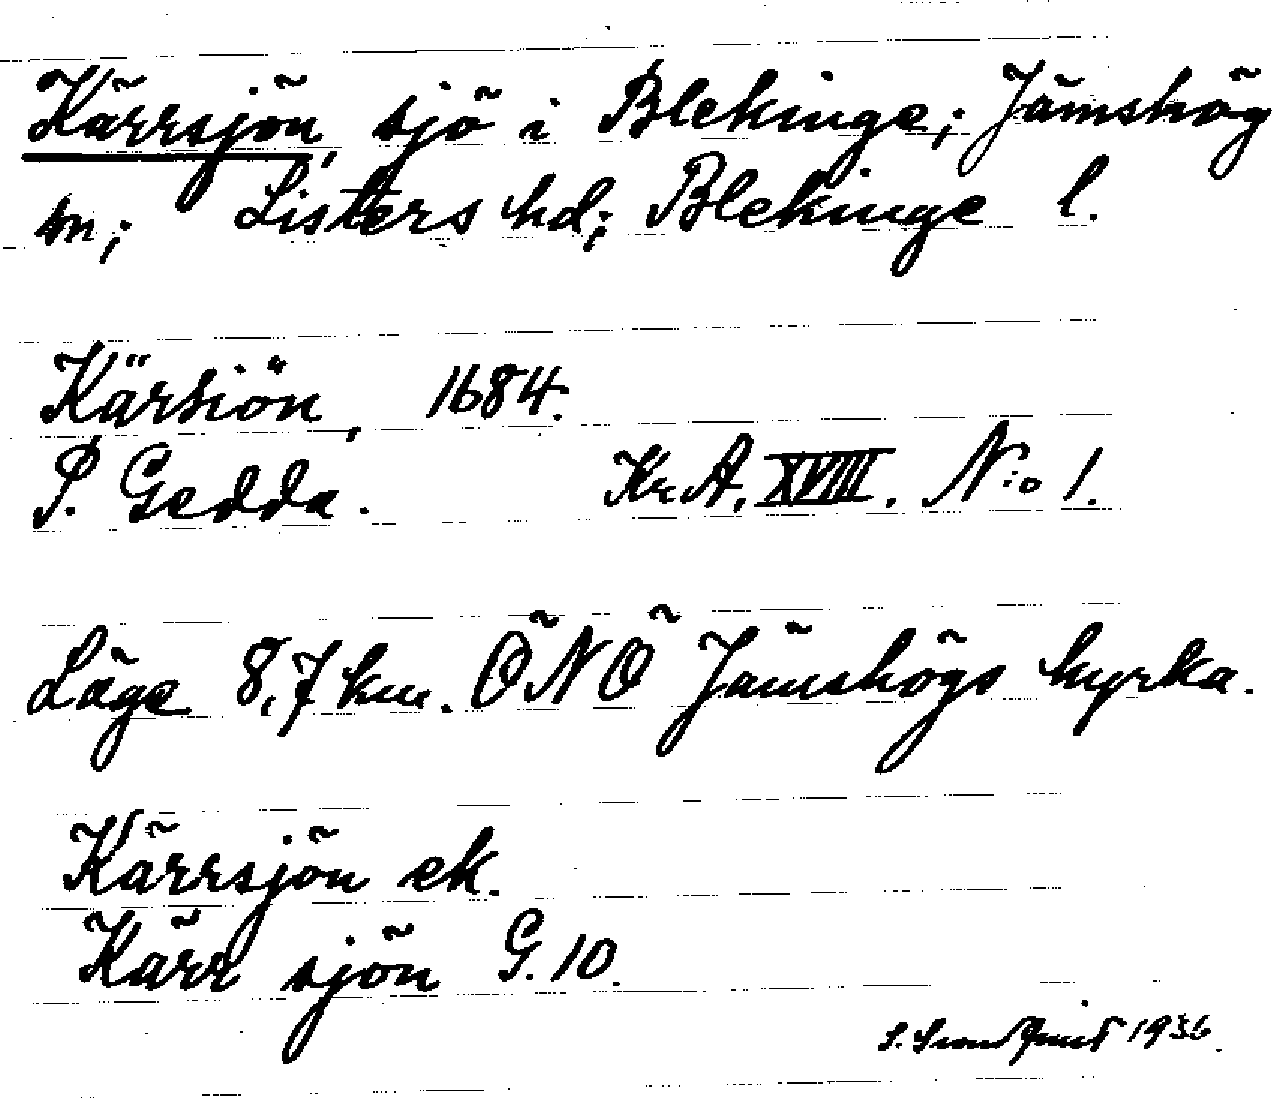 Kärrsjön, sjö i Blekinge; Jämshög
sn; Listers hd; Blekinge l.
Kärsiön, 1684.
P. Gedda. Kr.A. XVIII. N:o 1.
Läge 8,7 km. ÖNÖ Jämshögs kyrka.
Kärrsjön ek.
Kärr sjön G. 10.
1936.